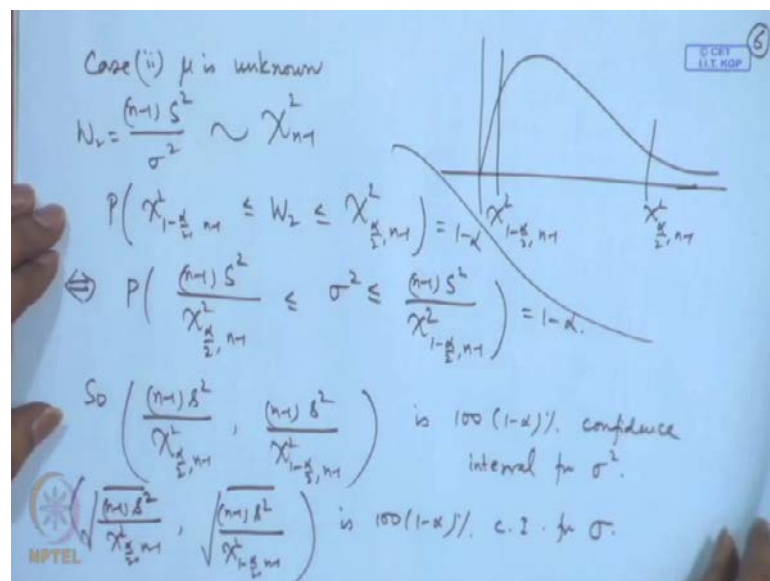 6
© CET
I.I.T. KGP
Case (ii) μ is unknown
W₂ = (n-1) S² / σ² ~ χ²ₙ₋₁
χ²_{1-α/2, n-1} χ²_{α/2, n-1}
P( χ²_{1-α/2, n-1} ≤ W₂ ≤ χ²_{α/2, n-1} ) = 1-α
⇔ P( (n-1) S² / χ²_{α/2, n-1} ≤ σ² ≤ (n-1) S² / χ²_{1-α/2, n-1} ) = 1-α.
So ( (n-1) s² / χ²_{α/2, n-1} , (n-1) s² / χ²_{1-α/2, n-1} ) is 100 (1-α)%. confidence
interval for σ².
( √((n-1) s² / χ²_{α/2, n-1}) , √((n-1) s² / χ²_{1-α/2, n-1}) ) is 100 (1-α)%. c.I. for σ.
NPTEL